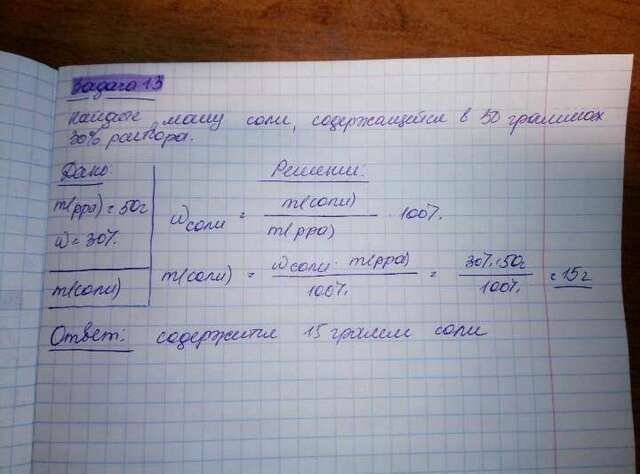 Задача 13
Найдите массу соли, содержащейся в 50 граммах
30% раствора.
Дано:
Решение:
m(рра) = 50г
W = 30%
m(соли)
Wсоли = m(соли) / m(рра) · 100%
m(соли) = Wсоли · m(рра) / 100% = 30% · 50г / 100% = 15г
Ответ: содержится 15 грамм соли